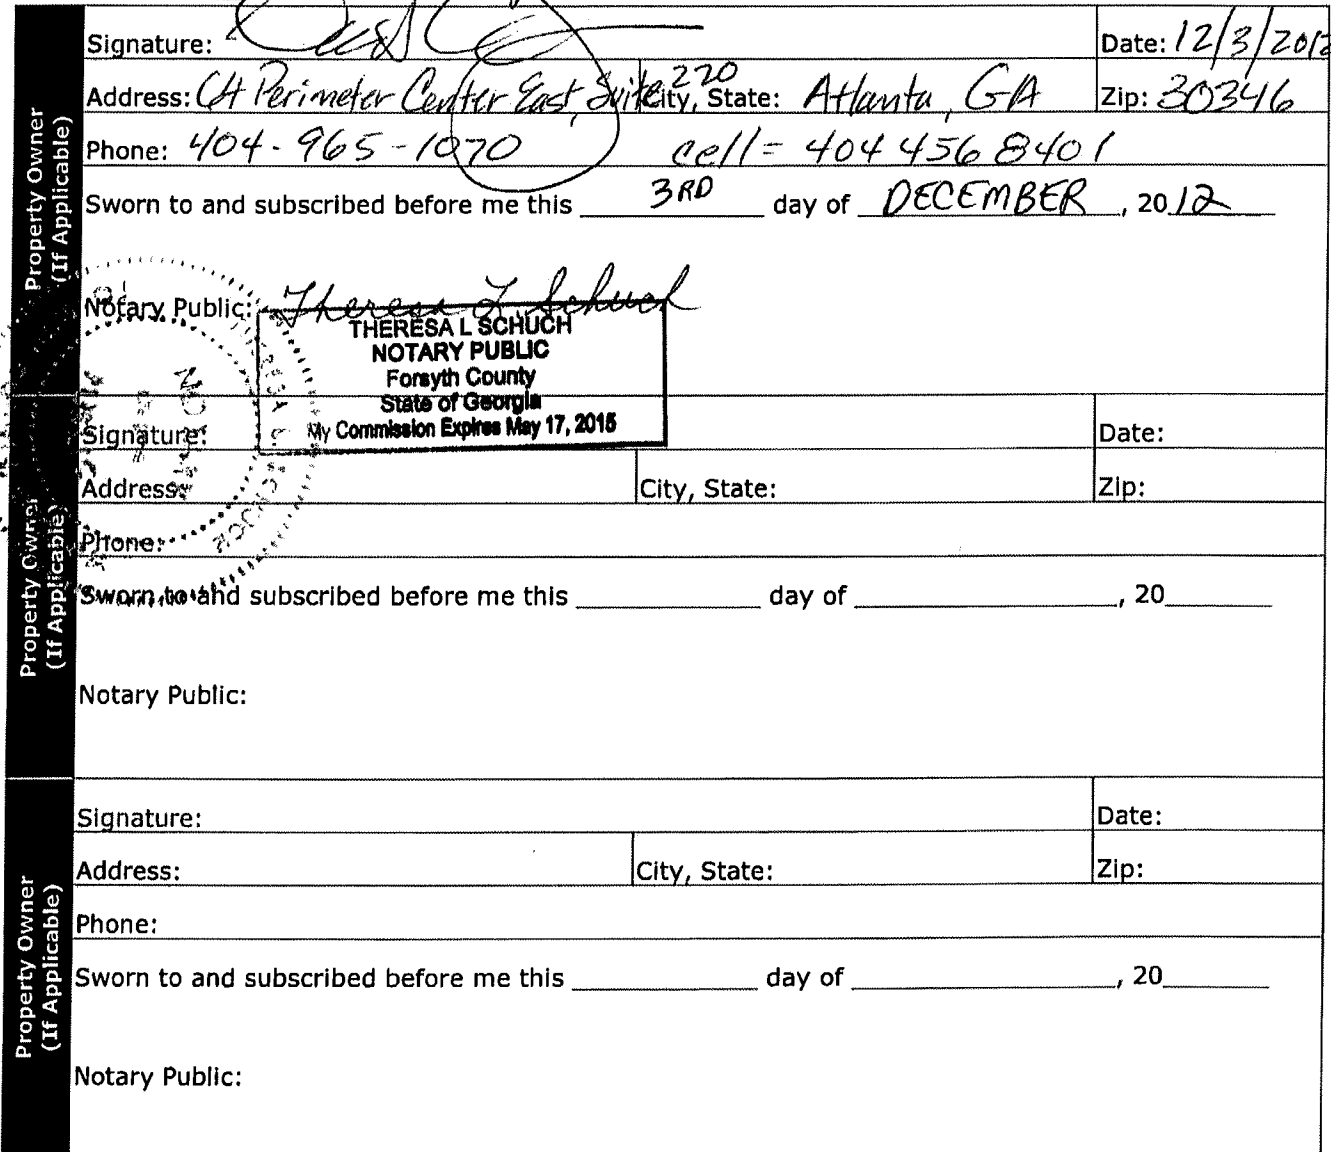 Signature:
Date: 12/3/2012
Address: 64 Perimeter Center East, Suite 220
City, State: Atlanta, GA
Zip: 30346
Phone: 404-965-1070 cell= 404 456 8401
Sworn to and subscribed before me this 3RD day of DECEMBER, 2012
Notary Public: Theresa L Schuch
THERESA L SCHUCH
NOTARY PUBLIC
Forsyth County
State of Georgia
My Commission Expires May 17, 2015
Property Owner
(If Applicable)
Signature:
Date:
Address:
City, State:
Zip:
Phone:
Sworn to and subscribed before me this ____ day of ____, 20____
Notary Public:
Property Owner
(If Applicable)
Signature:
Date:
Address:
City, State:
Zip:
Phone:
Sworn to and subscribed before me this ____ day of ____, 20____
Notary Public:
Property Owner
(If Applicable)